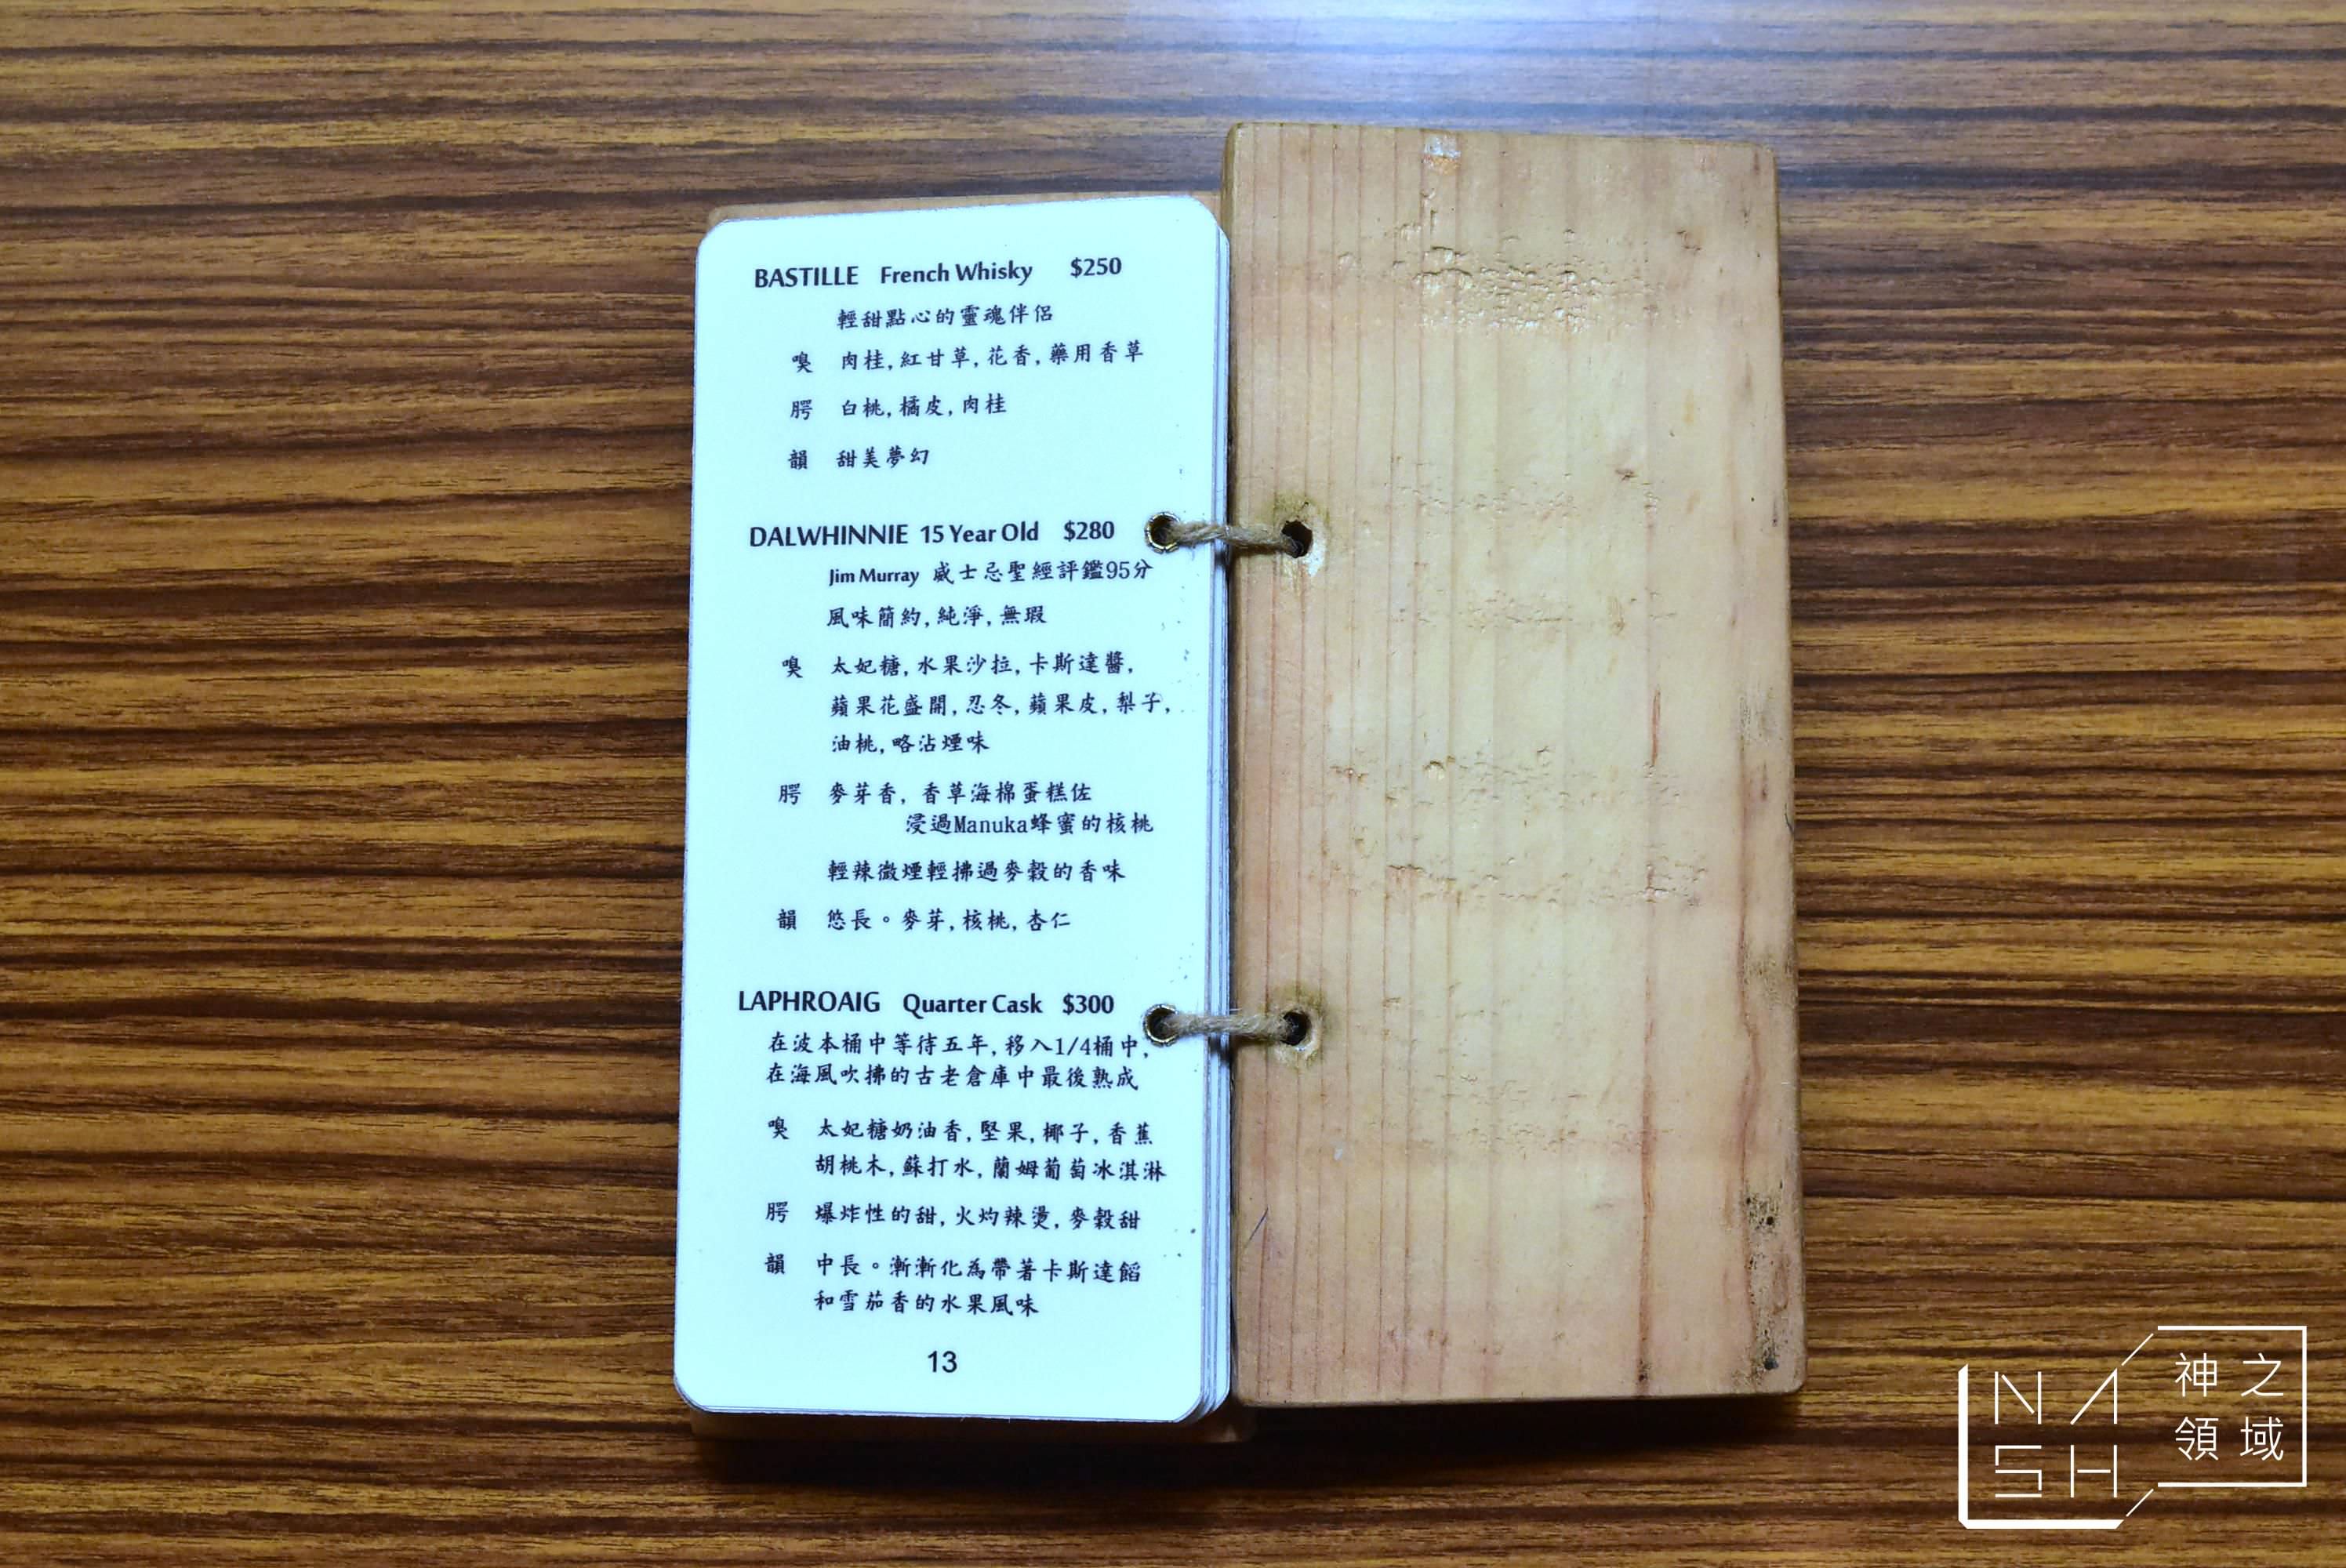 BASTILLE French Whisky $250
輕甜點心的靈魂伴侶
嗅 肉桂,紅甘草,花香,藥用香草
腭 白桃,橘皮,肉桂
韻 甜美夢幻
DALWHINNIE 15 Year Old $280
Jim Murray 威士忌聖經評鑑95分
風味簡約,純淨,無瑕
嗅 太妃糖,水果沙拉,卡斯達醬,
蘋果花盛開,忍冬,蘋果皮,梨子,
油桃,略沾煙味
腭 麥芽香, 香草海棉蛋糕佐
浸過Manuka蜂蜜的核桃
輕辣微煙輕拂過麥穀的香味
韻 悠長。麥芽,核桃,杏仁
LAPHROAIG Quarter Cask $300
在波本桶中等待五年,移入1/4桶中,
在海風吹拂的古老倉庫中最後熟成
嗅 太妃糖奶油香,堅果,椰子,香蕉
胡桃木,蘇打水,蘭姆葡萄冰淇淋
腭 爆炸性的甜,火灼辣燙,麥穀甜
韻 中長。漸漸化為帶著卡斯達餡
和雪茄香的水果風味
13
NASH
神之
領域